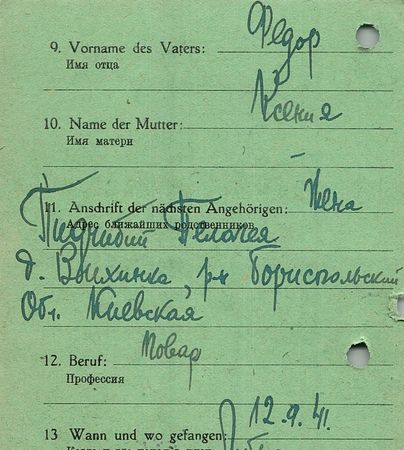 9. Vorname des Vaters: Федор
Имя отца
Ксения
10. Name der Mutter:
Имя матери
11. Anschrift der nächsten Angehörigen: Жена
Адрес ближайших родственников
Пелагея
д. , р-н Бориспольский
Обл. Киевская
12. Beruf: Повар
Профессия
12.9.41.
13 Wann und wo gefangen: